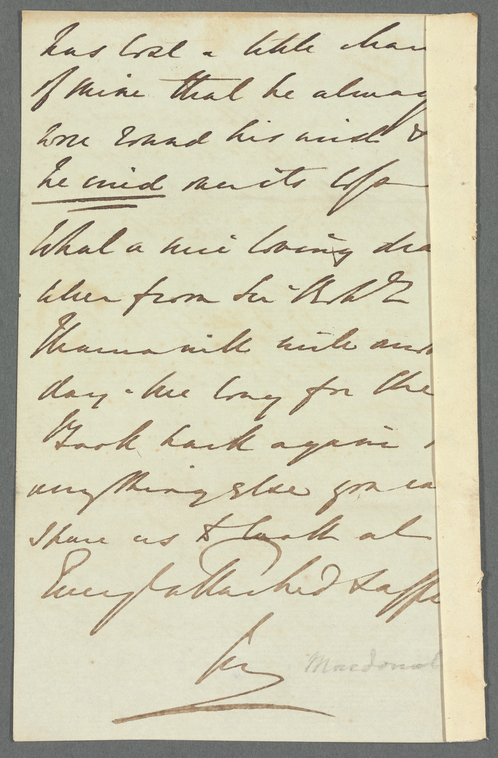 has lost a little chain
of mine that he always
wore round his neck &
he cried over its loss
What a nice loving dea
letter from Sir Robt
Thomas will write anot
day - We long for the
Book back again
anything else you ca
spare us to look at
Ever yr attached & affe
Macdonal